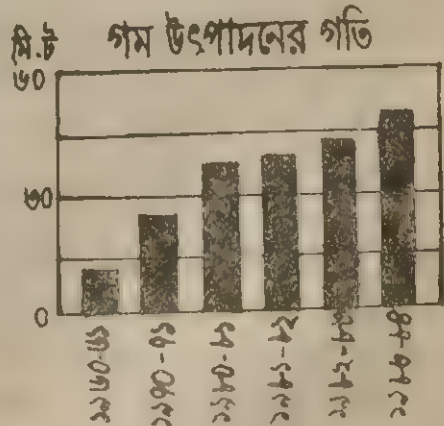 মি.ট
গম উৎপাদনের গতি
৬০
৩০
০
১৯৭০-৭১
১৯৮০-৮১
১৯৮১-৮২
১৯৮২-৮৩
১৯৮৩-৮৪